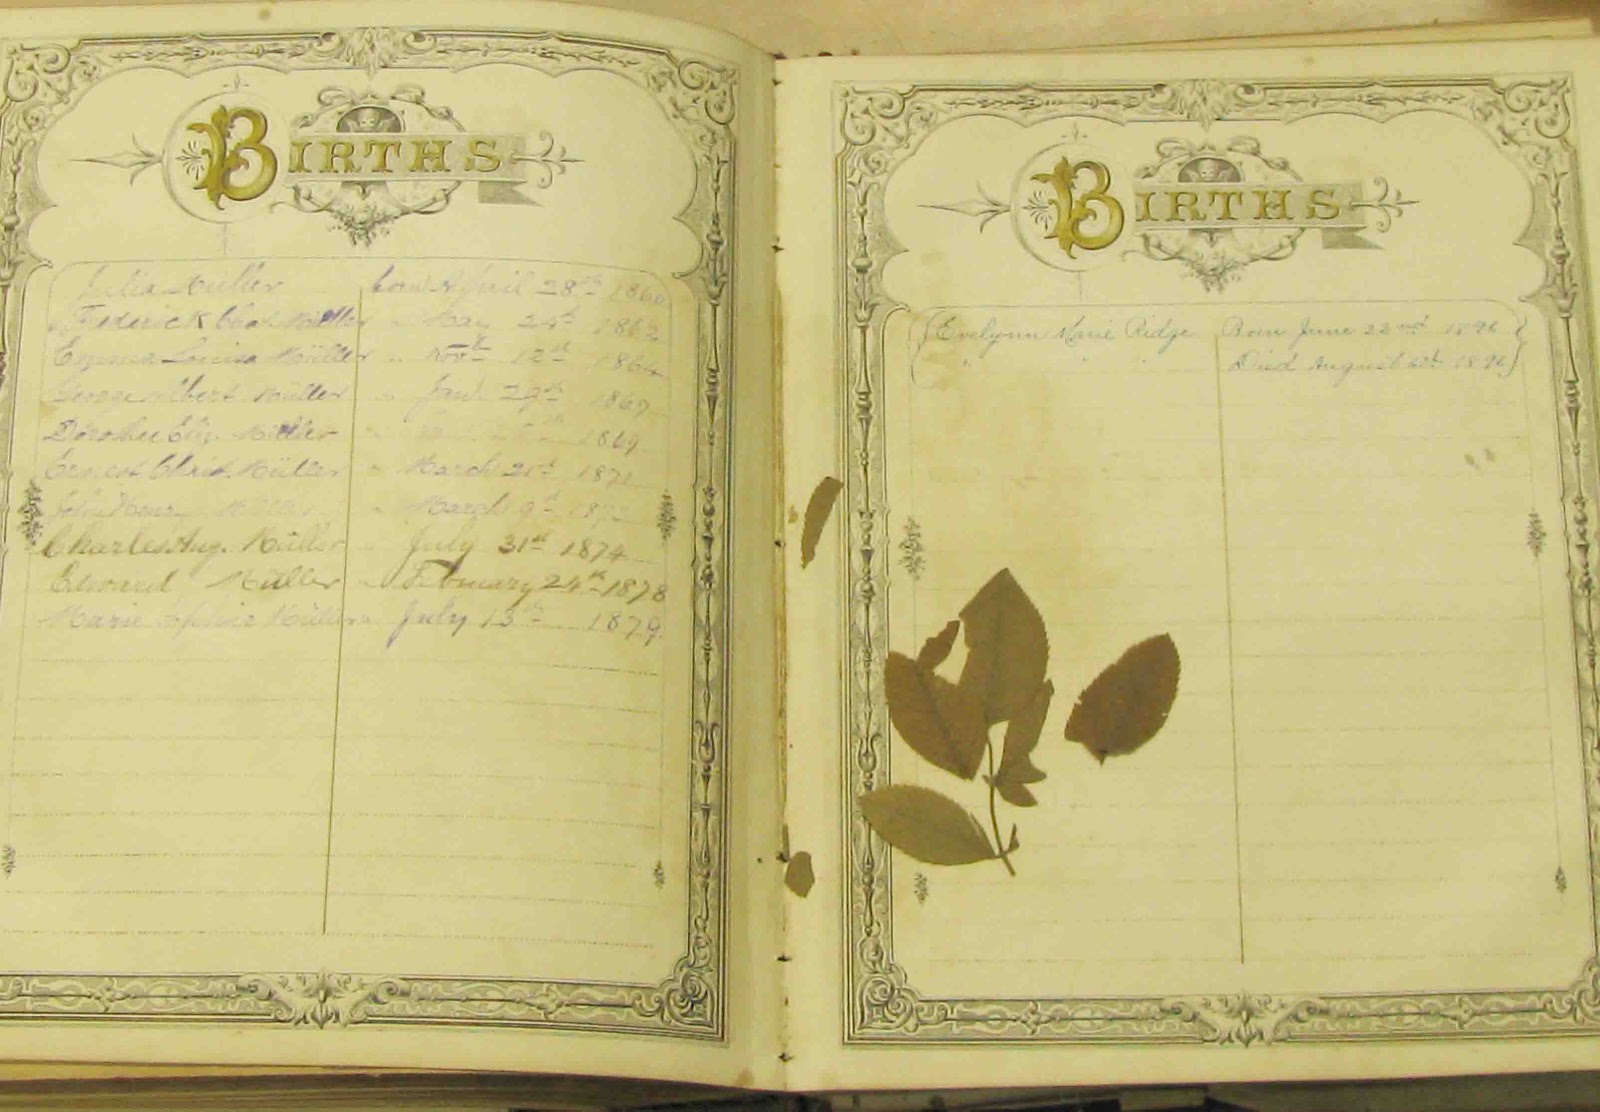 BIRTHS
Julia Müller born April 28th 1860
Frederick Chas. Müller " May 24th 1862
Emma Louisa Müller " Nov 12th 1864
George Albert Müller " Jan. 29th 1867
Dorothee Eliz. Müller " 1869
Ernest Christ. Müller " March 21st 1871
John Henry Müller " March 9th
Charles Aug. Müller " July 31st 1874
Edward Müller " February 24th 1878
Marie Sophie Müller " July 13th 1879.
BIRTHS
{Evelynn Marie Ridge Born June 22nd 1896}
" " " Died August 1896}